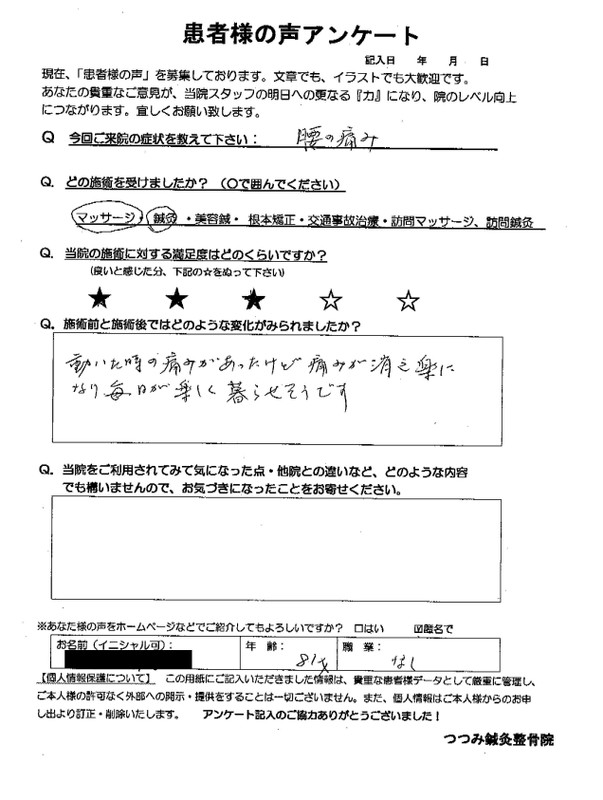 患者様の声アンケート
記入日　年　月　日
現在、「患者様の声」を募集しております。文章でも、イラストでも大歓迎です。
あなたの貴重なご意見が、当院スタッフの明日への更なる『力』になり、院のレベル向上
につながります。宜しくお願い致します。
Q 今回ご来院の症状を教えて下さい：　腰の痛み
Q. どの施術を受けましたか？（○で囲んでください）
マッサージ・鍼灸・美容鍼・根本矯正・交通事故治療・訪問マッサージ、訪問鍼灸
Q. 当院の施術に対する満足度はどのくらいですか？
（良いと感じた分、下記の☆をぬって下さい）
★ ★ ★ ☆ ☆
Q. 施術前と施術後ではどのような変化がみられましたか？
動いた時の痛みがあったけど痛みが消え楽に
なり毎日が楽しく暮らせそうです
Q. 当院をご利用されてみて気になった点・他院との違いなど、どのような内容
でも構いませんので、お気づきになったことをお寄せください。
※あなた様の声をホームページなどでご紹介してもよろしいですか？ □はい ☑匿名で
お名前（イニシャル可）： 年齢： 81才 職業： なし
【個人情報保護について】 この用紙にご記入いただきました情報は、貴重な患者様データとして厳重に管理し、
ご本人様の許可なく外部への開示・提供をすることは一切ございません。また、個人情報はご本人様からのお申
し出より訂正・削除いたします。 アンケート記入のご協力ありがとうございました！
つつみ鍼灸整骨院